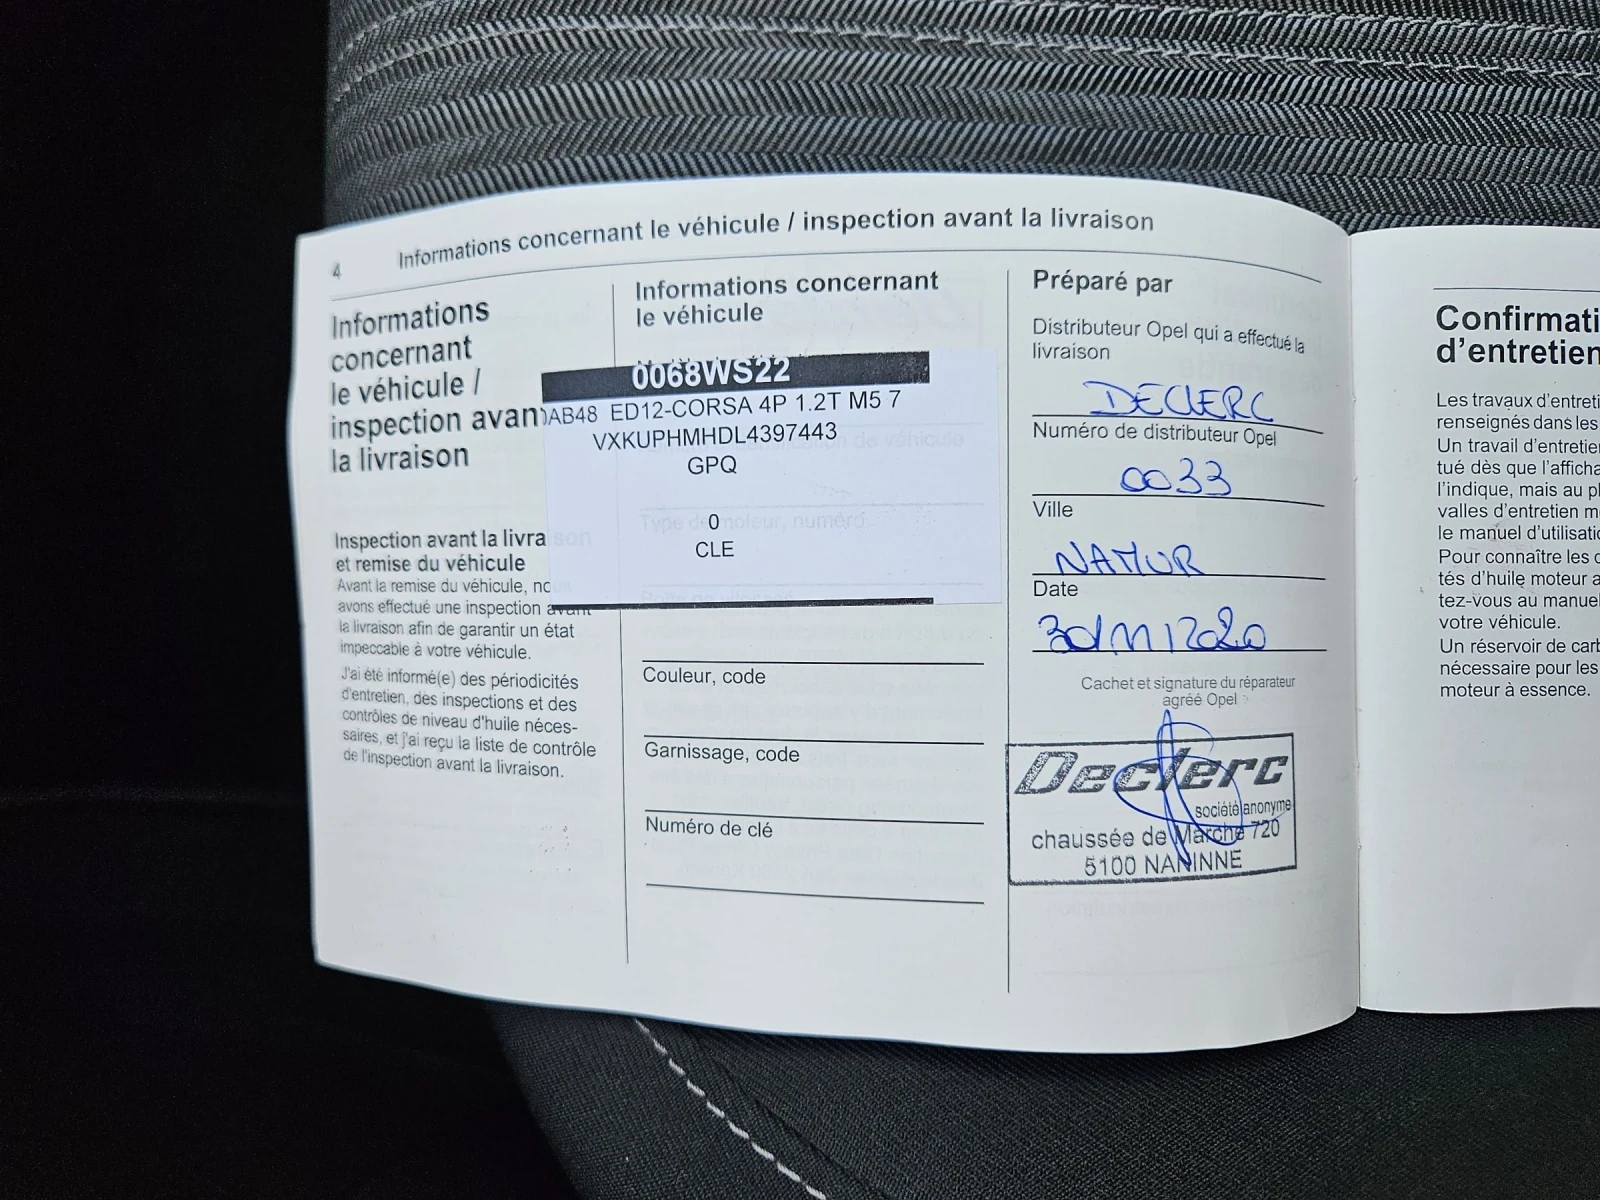 4
Informations concernant le véhicule / inspection avant la livraison
Informations
concernant
le véhicule /
inspection avan
la livraison
Inspection avant la livraison
et remise du véhicule
Avant la remise du véhicule, nous
avons effectué une inspection avant
la livraison afin de garantir un état
impeccable à votre véhicule.
J'ai été informé(e) des périodicités
d'entretien, des inspections et des
contrôles de niveau d'huile néces-
saires, et j'ai reçu la liste de contrôle
de l'inspection avant la livraison.
Informations concernant
le véhicule
0068WS22
0AB48 ED12-CORSA 4P 1.2T M5 7
VXKUPHMHDL4397443
GPQ
Type de moteur, numéro
0
CLE
Couleur, code
Garnissage, code
Numéro de clé
Préparé par
Distributeur Opel qui a effectué la
livraison
DECLERC
Numéro de distributeur Opel
0033
Ville
NAMUR
Date
30/11/2020
Cachet et signature du réparateur
agréé Opel
Declerc
société anonyme
chaussée de Marche 720
5100 NANINNE
Confirmati
d'entretien
Les travaux d'entreti
renseignés dans les
Un travail d'entretie
tué dès que l'afficha
l'indique, mais au pl
valles d'entretien m
le manuel d'utilisatio
Pour connaître les
tés d'huile moteur a
tez-vous au manuel
votre véhicule.
Un réservoir de carb
nécessaire pour les
moteur à essence.